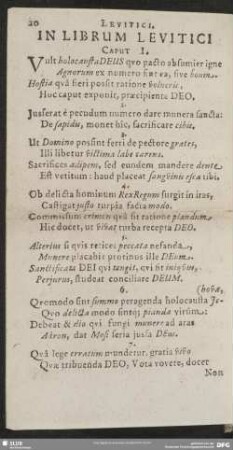 20 LEVITICI.
IN LIBRUM LEVITICI
CAPUT I.
Vult holocausta DEUS qvo pacto absumier igne
Agnorum ex numero sive boum
Hostia qvâ fieri possit ratione volucris,
Hoc caput exponit, præcipiente DEO.
2.
Jusserat è pecudum numero dare munera sancta:
De sapidis, monet hîc, sacrificare cibis.
3.
Ut Domino possint ferri de pectore grates,
Illi libetur victima labe carens.
Sacrificas adipem, sed eundem mandere dente
Est vetitum: haud placeat sangvinis esca tibi.
4.
Ob delicta hominum Rex Regum surgit in iras,
Castigat justo turpia facta modo.
Commissum crimen qvâ sit ratione piandum
Hîc docet, ut vivat turba recepta DEO.
5.
Alterius si qvis reticet peccata nefanda,
Munere placabit protinus ille DEUM.
Sanctificata DEI qvi tangit, qvi sit iniqvus,
Perjurus, studeat conciliare DEUM.
6. (hovæ,
Qvomodo sint summo peragenda holocausta Je-
Qvo delicta modo sint pianda virûm:
Debeat & dio qvi fungi munere ad aras
Ahron, dat Mosi seria jussa DEus.
7.
Qvâ lege erratum mundetur, gratia viva
Qvæ tribuenda DEO, Vota vovere, docet
Non